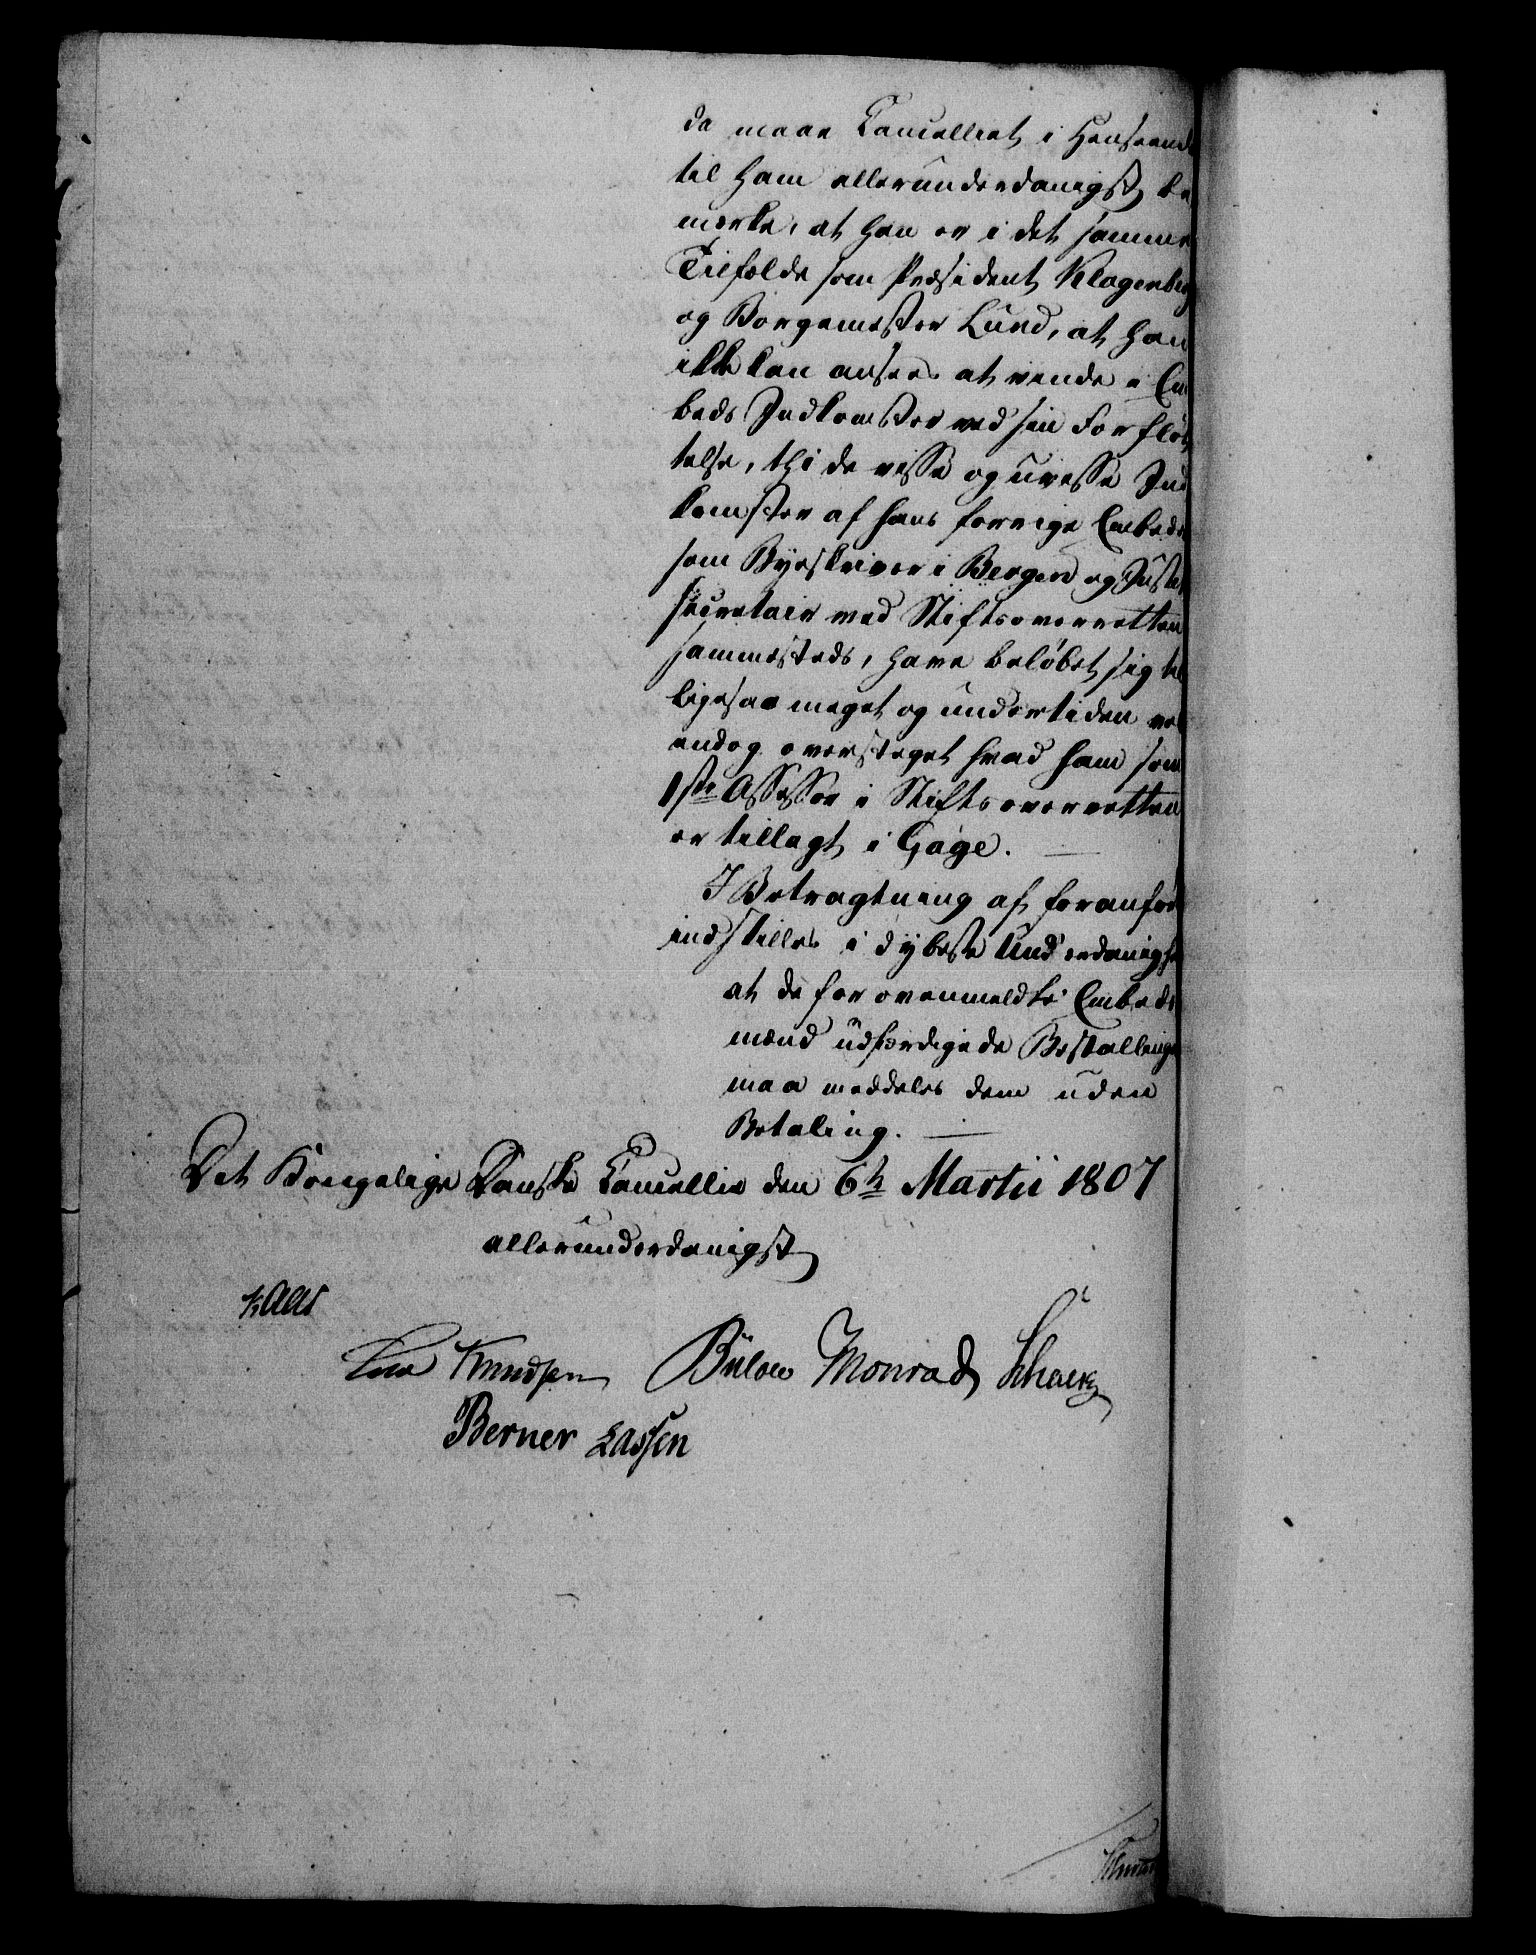 da maae Cancelliet i Henseende
til ham allerunderdanigst be
mærke, at han er i det samme
Tilfælde som Præsident Klagenberg
og Borgemester Lund, at han
ikke kan ansees at vinde i Em
beds Indkomster ved sin Forflöt
telse, thi de visse og uvisse Ind
komster af hans forrige Embede
som Byeskriver i Bergen og Justits
secretair ved Stiftsoverretten
sammesteds, have belöbet sig til
ligesaa meget og undertiden vel
endog oversteget hvad ham som
1ste Assessor i Stiftsoverretten
er tillagt i Gage.
I Betragtning af foranför
indstilles i dybeste Underdanighe
at de for ovenmeldte Embeds
mænd udfærdigede Bestallinge
maa meddeles dem uden
Betaling.
Det Kongelige Danske Cancellie den 6te Martii 1807
allerunderdanigst
Kaas
Knudsen Bülow Monrad Schack
Berner Lassen